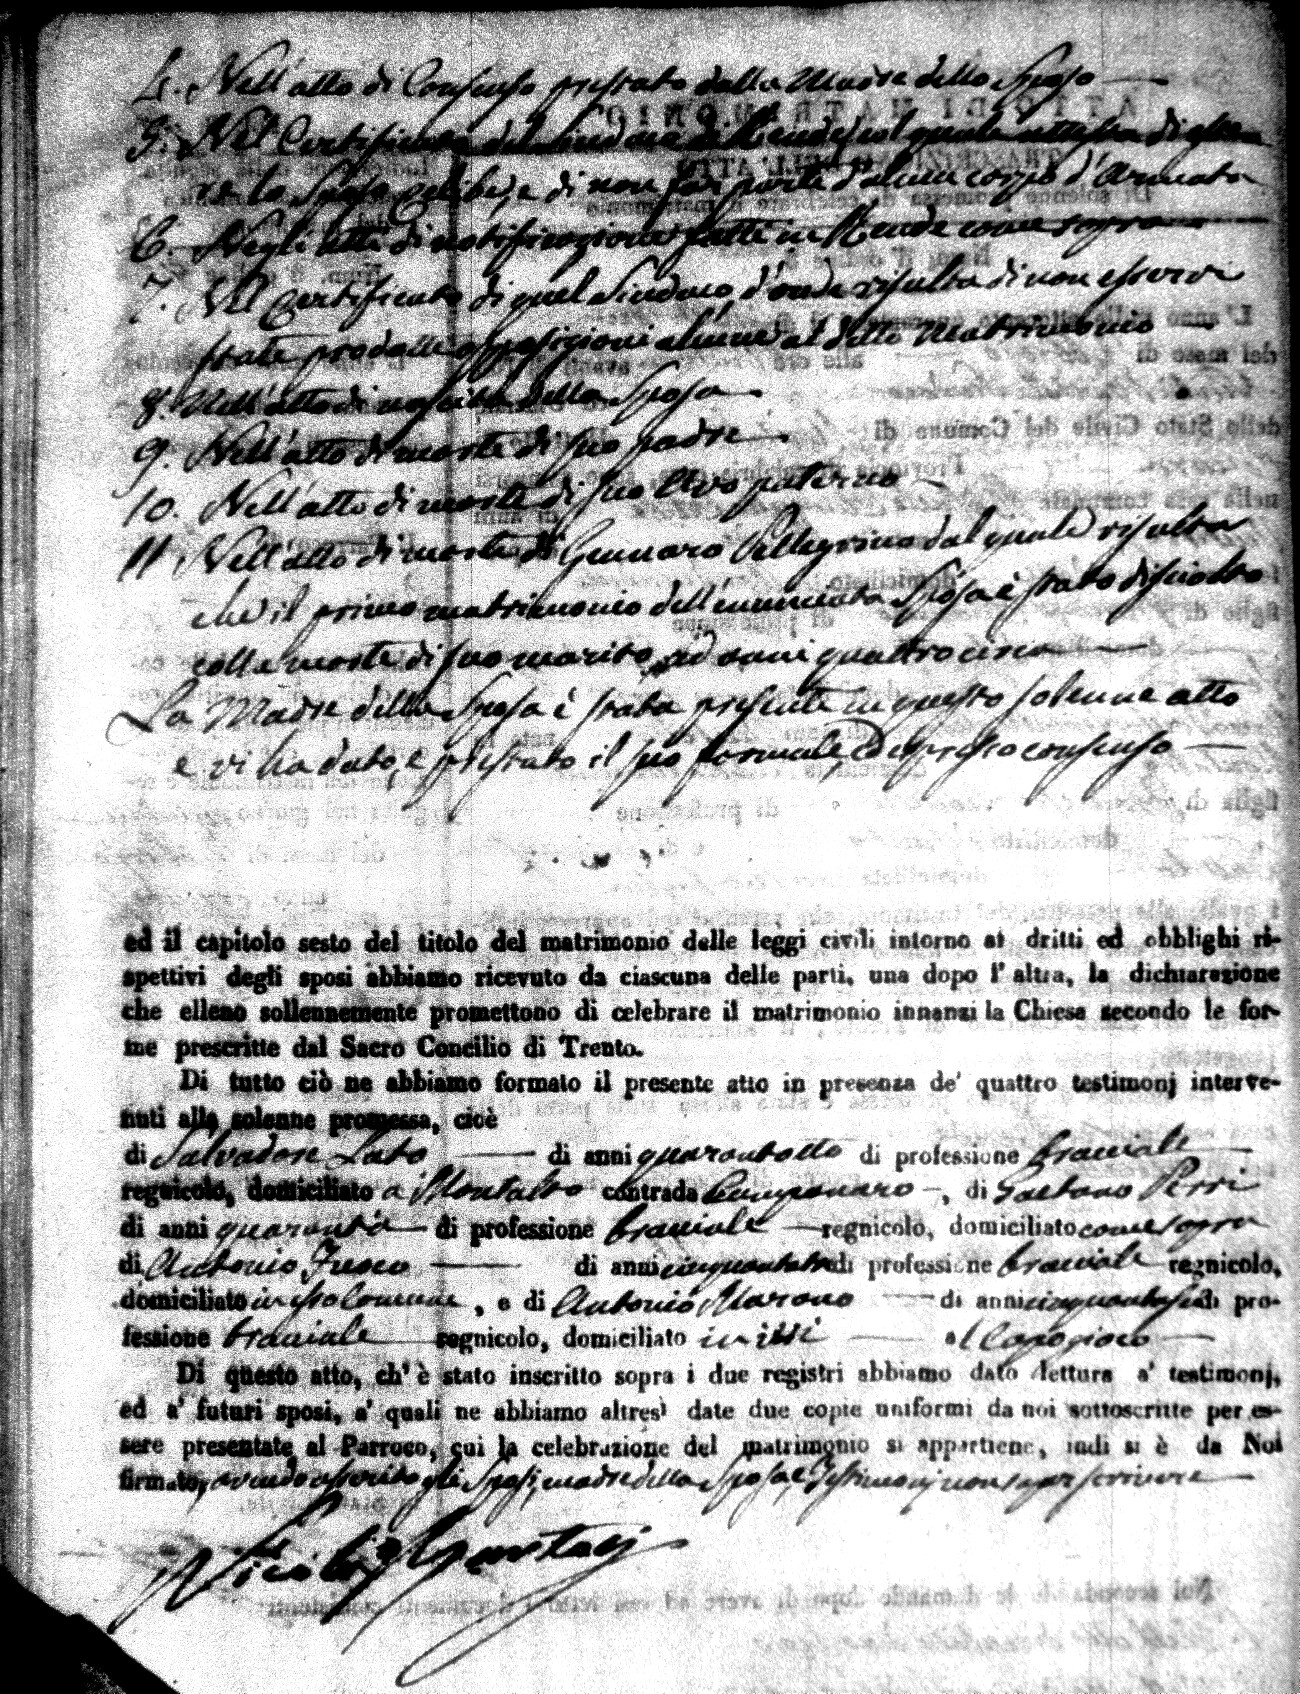 4. Nell'atto di Consenso prestato dalla Madre dello Sposo
5. Nel Certificato del Sindaco di Rende, col quale attesta di esse=
re lo Sposo celibe, e di non far parte d'alcun corpo d'Armata
6. Negli atti di notificazione fatti in Rende come sopra
7. Nel Certificato di quel Sindaco, d'onde risulta di non esservi
state prodotte opposizioni alcune al detto Matrimonio
8. Nell'atto di nascita della Sposa
9. Nell'atto di morte di suo padre
10. Nell'atto di morte di suo Avo paterno
11 Nell'atto di morte di Gennaro Pellegrino dal quale risulta
che il primo matrimonio dell'enunciata Sposa è stato disciolto
colla morte di suo marito, anni quattro
La Madre della Sposa è stata presente in questo solenne atto
e vi ha dato, e prestato il suo formale, ed espresso consenso
ed il capitolo sesto del titolo del matrimonio delle leggi civili intorno ai dritti ed obblighi ri-
spettivi degli sposi abbiamo ricevuto da ciascuna delle parti, una dopo l'altra, la dichiarazione
che elleno sollennemente promettono di celebrare il matrimonio innanzi la Chiesa secondo le for-
me prescritte dal Sacro Concilio di Trento.
Di tutto ciò ne abbiamo formato il presente atto in presenza de' quattro testimonj interve-
nuti alla solenne promessa, cioè
di Salvadore Lato di anni quarantotto di professione bracciale
regnicolo, domiciliato a Montalto contrada , di Gaetano Perri
di anni quaranta di professione bracciale regnicolo, domiciliato come sopra
di Antonio Fusco di anni di professione bracciale regnicolo,
domiciliato in sto Comune, e di Antonio Marano di anni cinquantasei di pro-
fessione bracciale regnicolo, domiciliato in issi
Di questo atto, ch'è stato inscritto sopra i due registri abbiamo dato lettura a' testimonj,
ed a' futuri sposi, a' quali ne abbiamo altresì date due copie uniformi da noi sottoscritte per es-
sere presentate al Parroco, cui la celebrazione del matrimonio si appartiene, indi si è da Noi
firmato, avendo asserito gli Sposi, madre della Sposa e Testimonj non saper scrivere